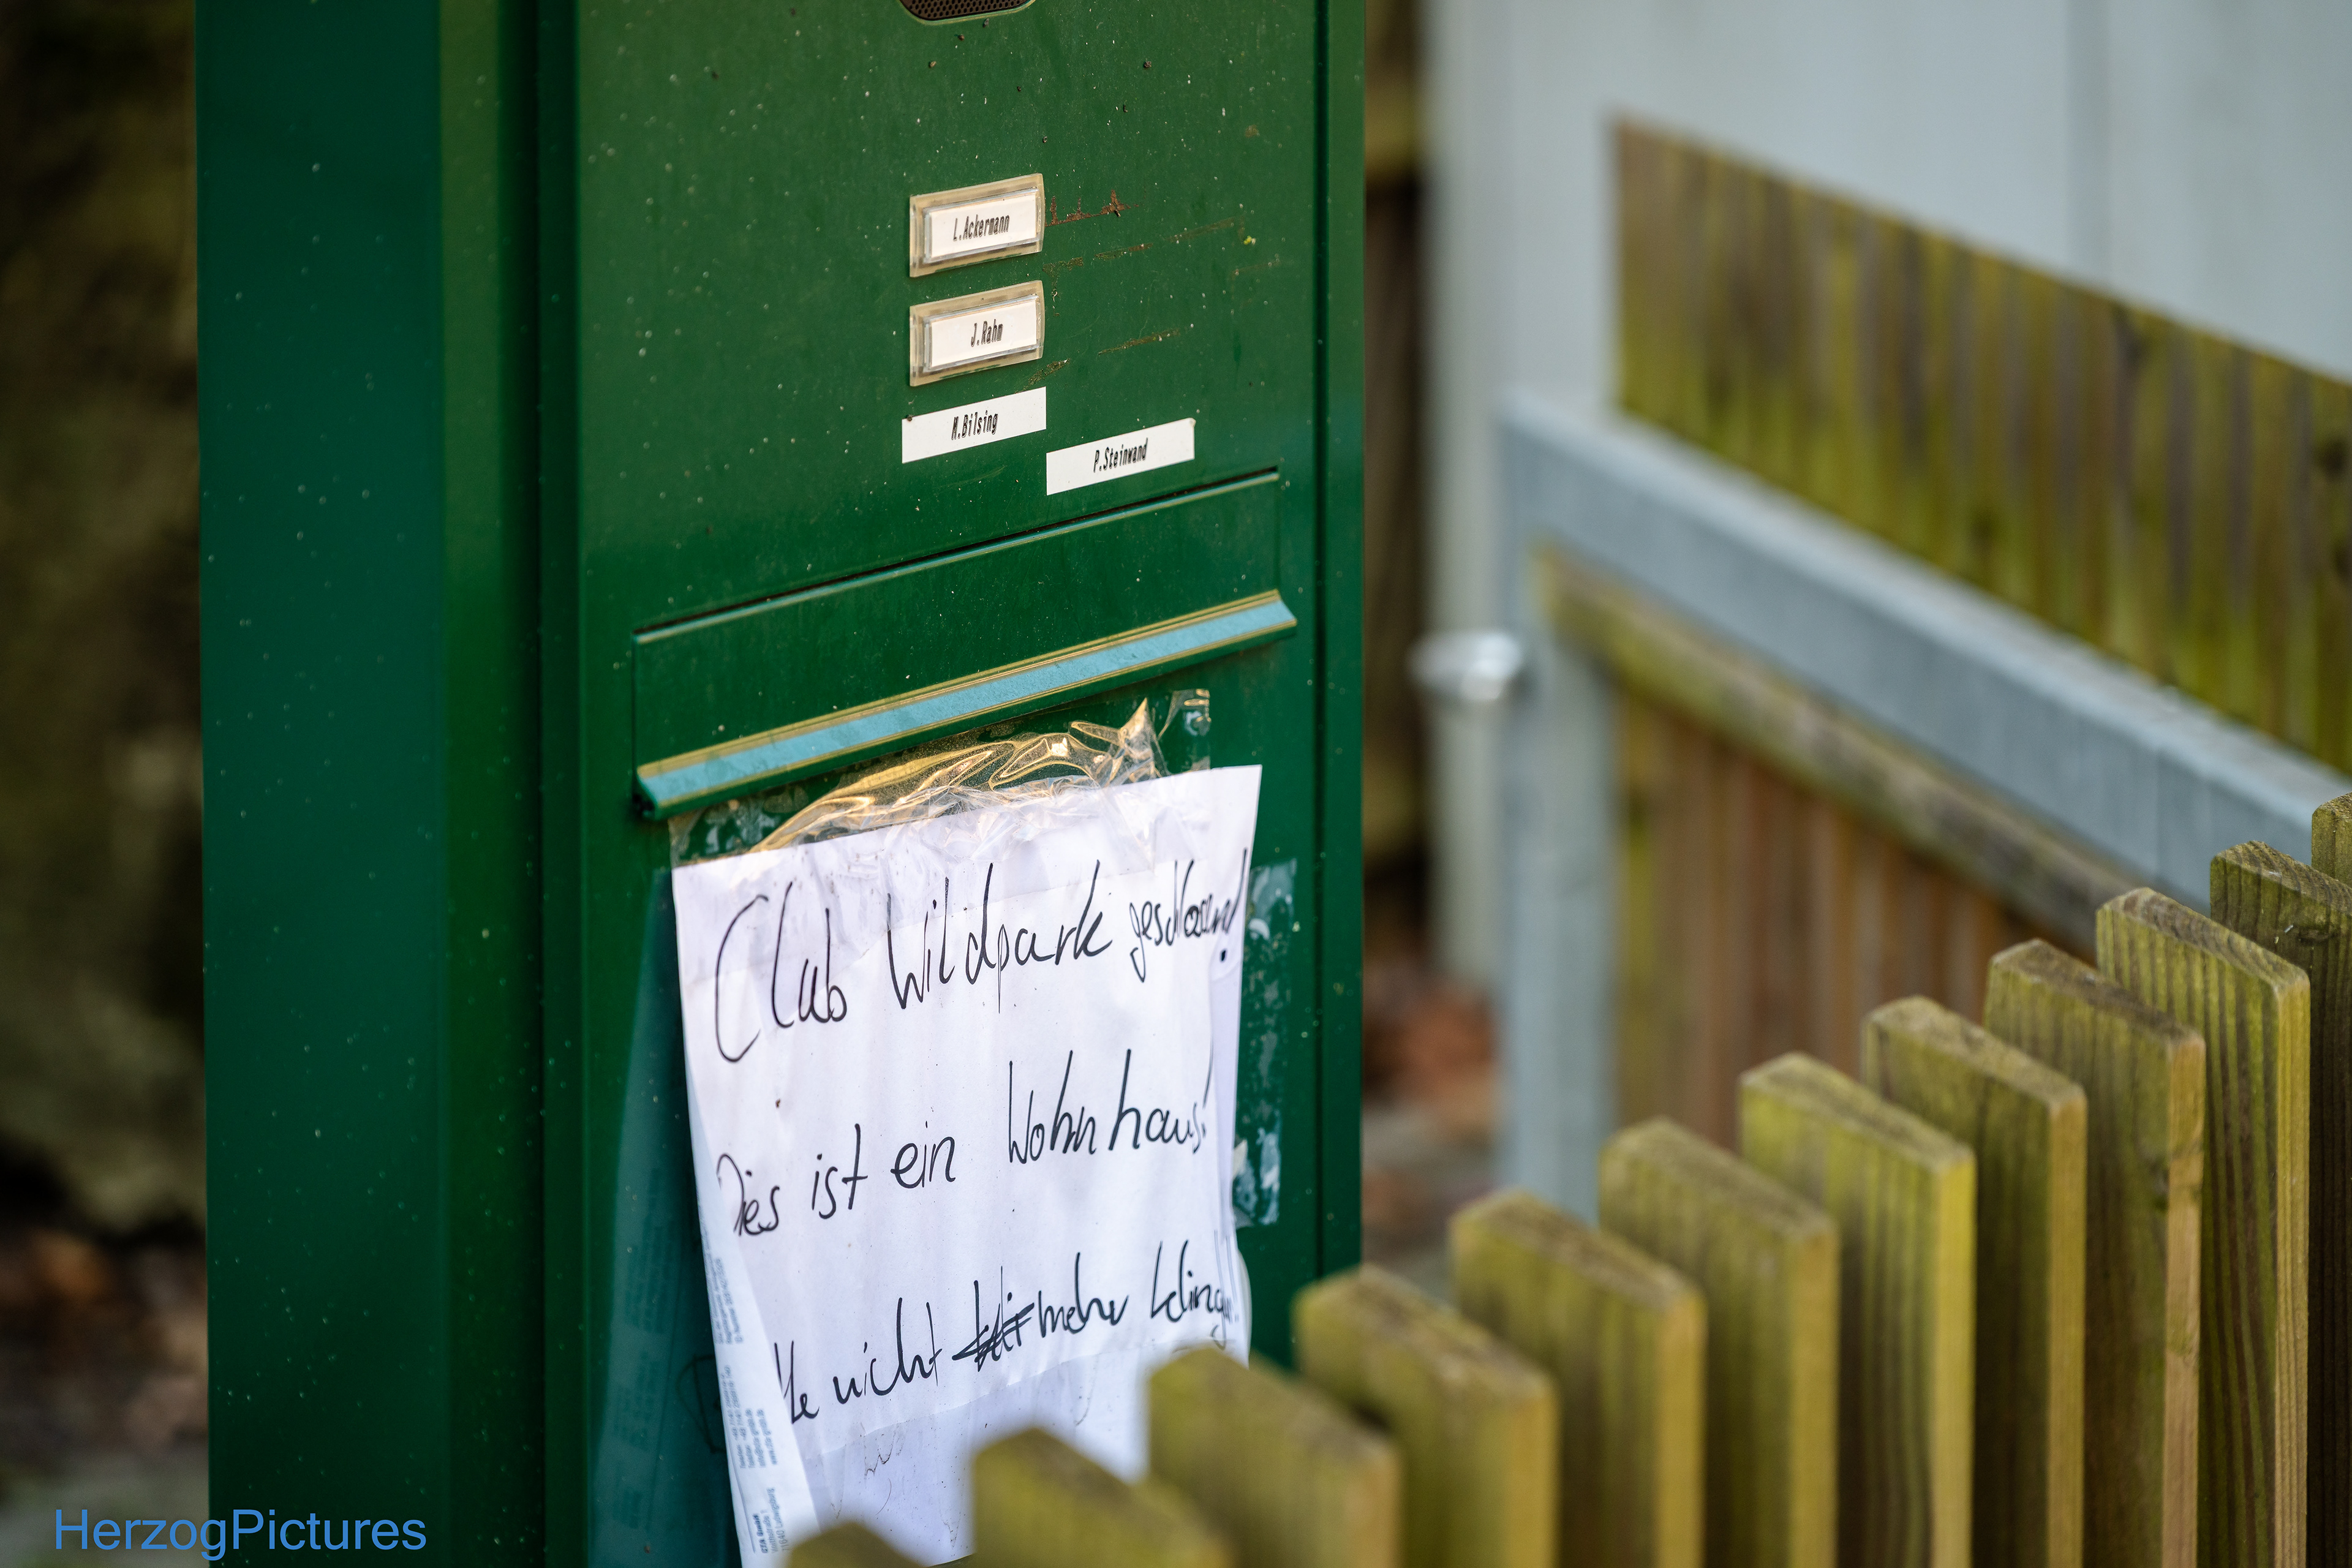 L.Ackermann
J.Rahm
M.Bilsing
P.Steinwand
Club Wildpark geschlossen!
Dies ist ein Wohnhaus!
nicht mehr klingeln!!
HerzogPictures